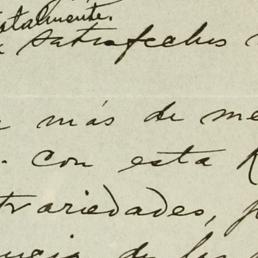 totalmente.
satisfechos
más de me
. Con esta
trariedades,
de los